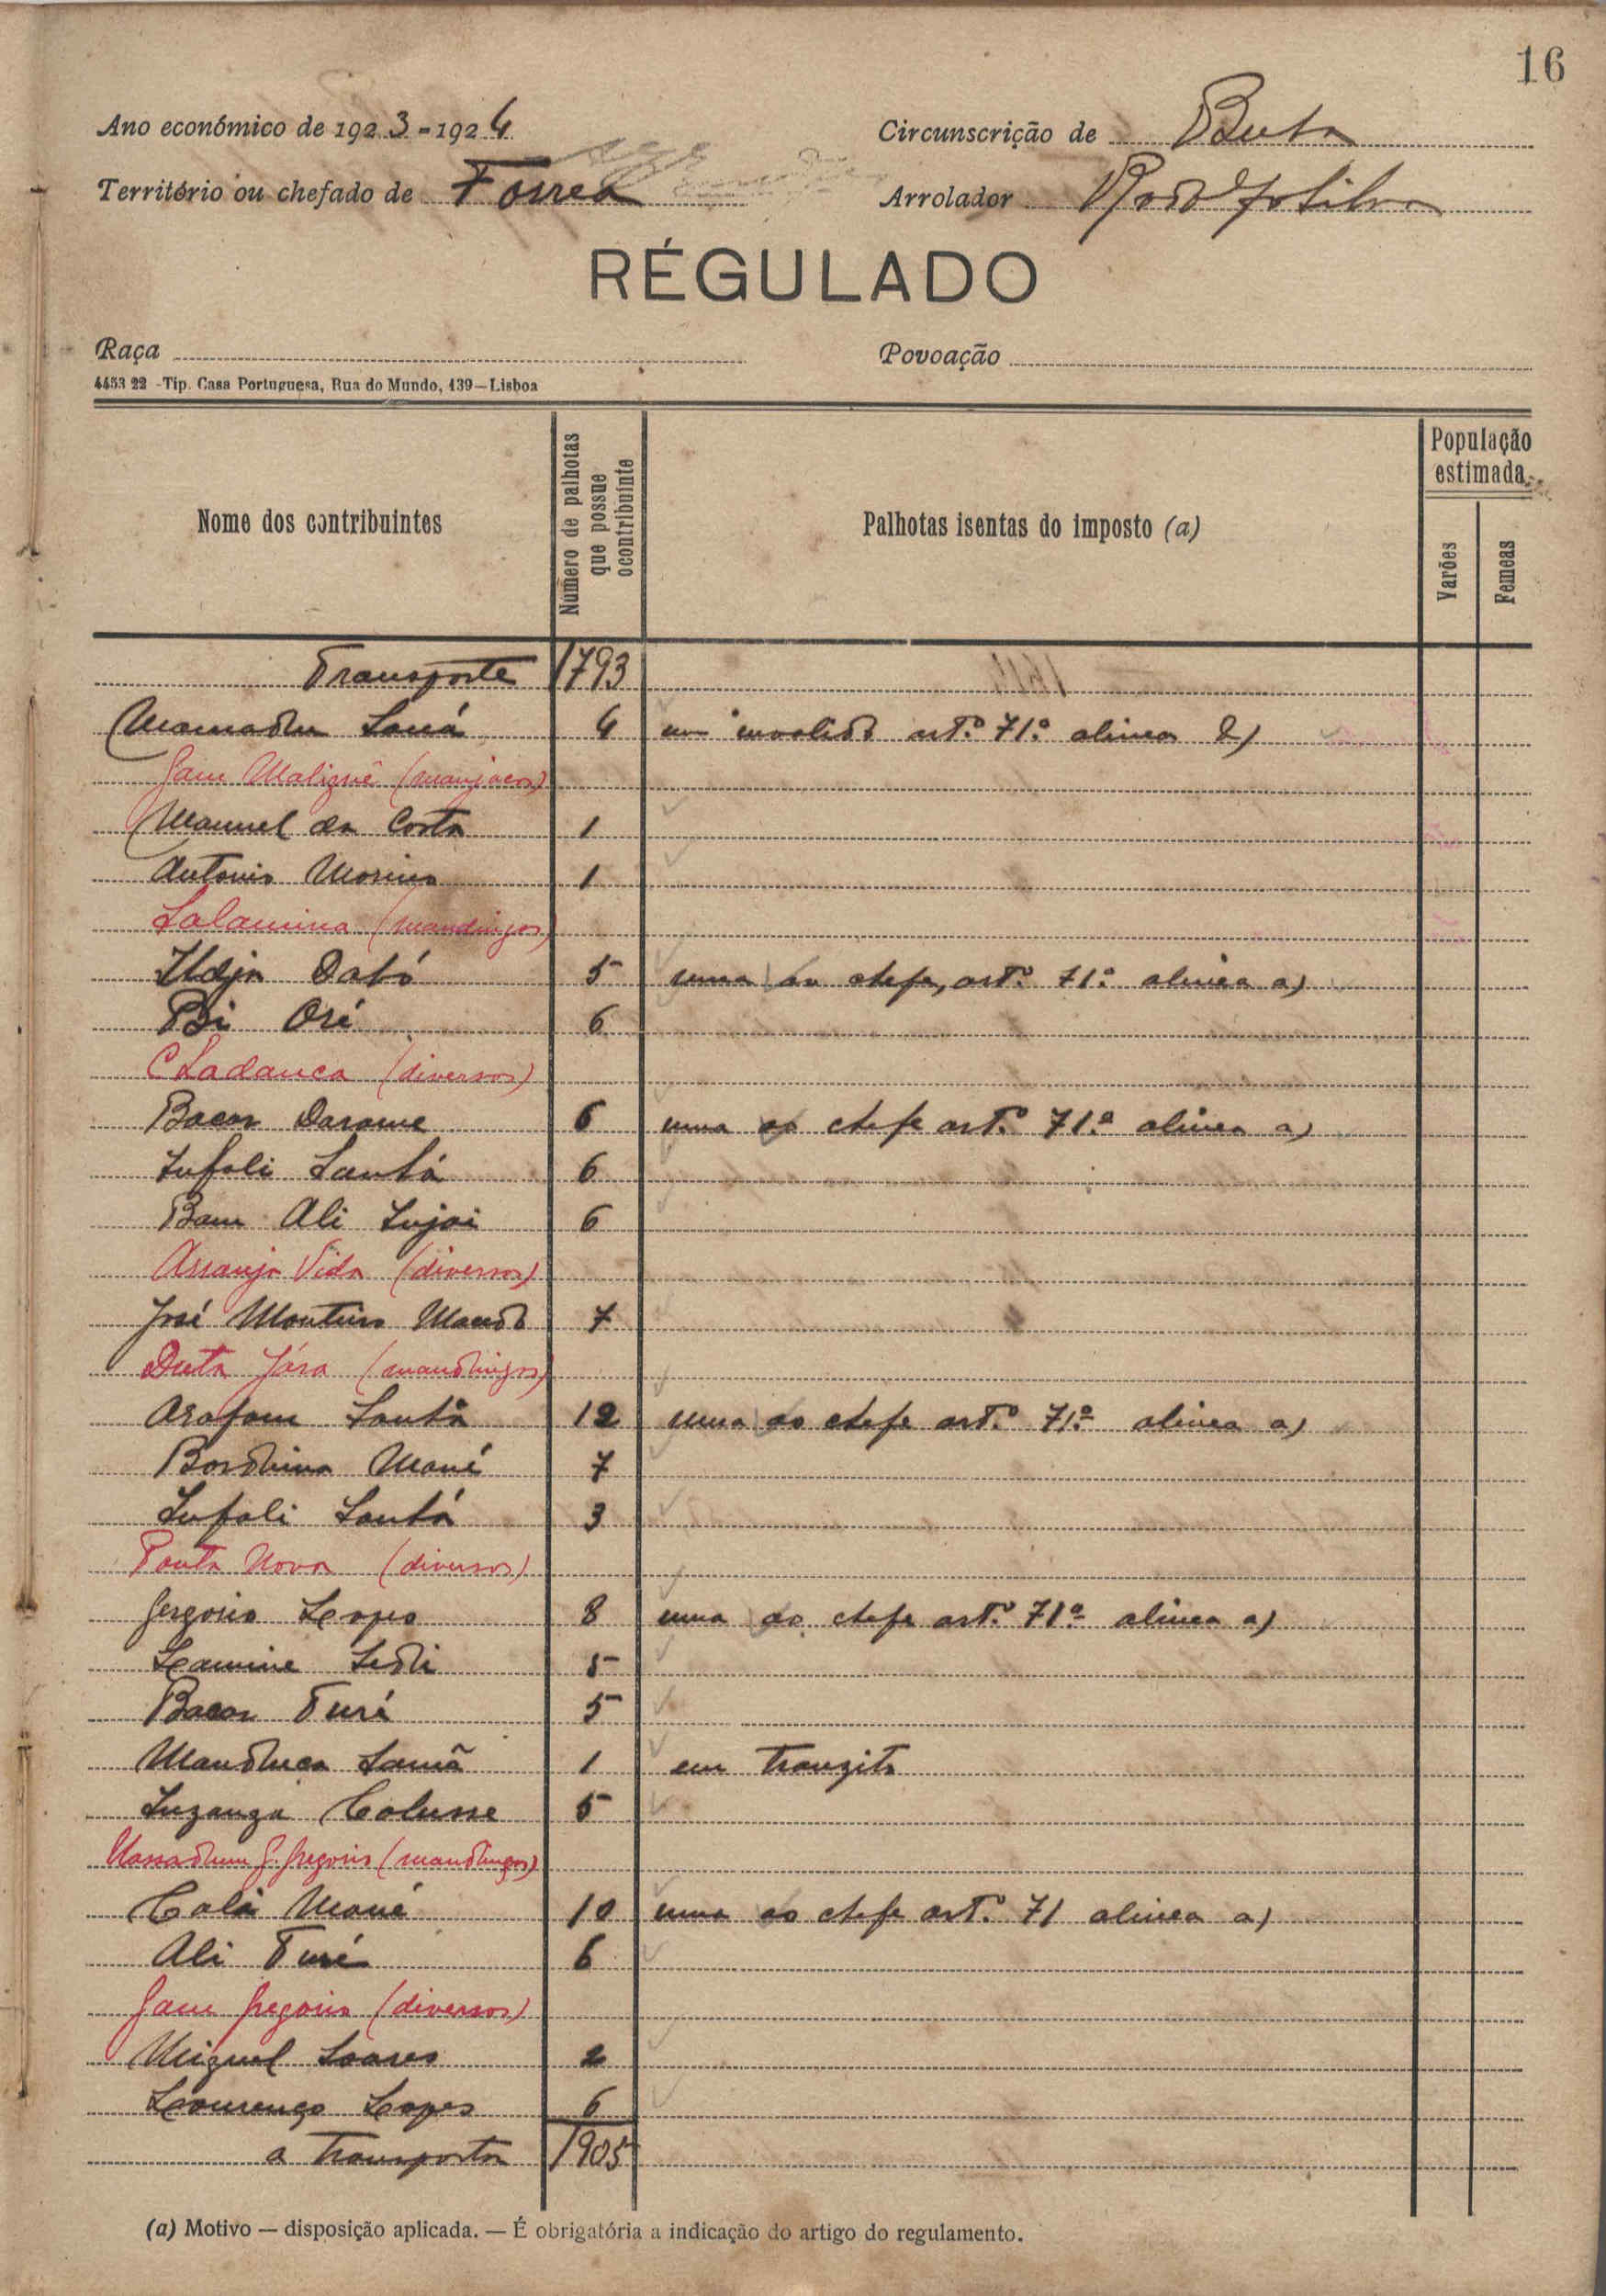 16
Ano económico de 1923-1924
Circunscrição de Buba
Território ou chefado de Forrea
Arrolador Rodolfo Silva
RÉGULADO
Raça
Povoação
4453 22 -Tip. Casa Portuguesa, Rua do Mundo, 139—Lisboa
Nome dos contribuintes
Número de palhotas que possue o contribuinte
Palhotas isentas do imposto (a)
População estimada
Varões
Femeas
Transporte 1793
Mamadu Saná 4 um invalido artº 71º alinea
(manjacos)
Manuel da Costa 1
Antonio Moreira 1
Salamina (mandingos)
Dabó 5 uma ao chefe, artº 71º alinea a)
Bi Oré 6
Ladanca (diversos)
Bacar Darame 6 uma ao chefe artº 71º alinea a)
Sufali Santá 6
Bam Ali Sujai 6
Arranja Vida (diversos)
José Monteiro Macedo 7
Jára (mandingos)
Arafam Santá 12 uma ao chefe artº 71º alinea a)
Bordhima Mané 7
Sufali Santá 3
Ponta Nova (diversos)
Gergorio Lopes 8 uma ao chefe artº 71º alinea a)
Lamine Seidi 5
Bacar Turé 5
Manduca Samã 1 em tranzito
5
(mandingos)
Calá Mané 10 uma ao chefe artº 71 alinea a)
Ali Turé 6
Gam Gregorio (diversos)
Miguel Soares 2
Lourenço Lopes 6
a Transportar 1905
(a) Motivo — disposição aplicada. — É obrigatória a indicação do artigo do regulamento.